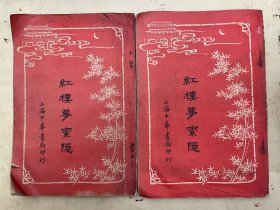 紅樓夢索隱
上海中華書局印行
紅樓夢索隱
上海中華書局印行